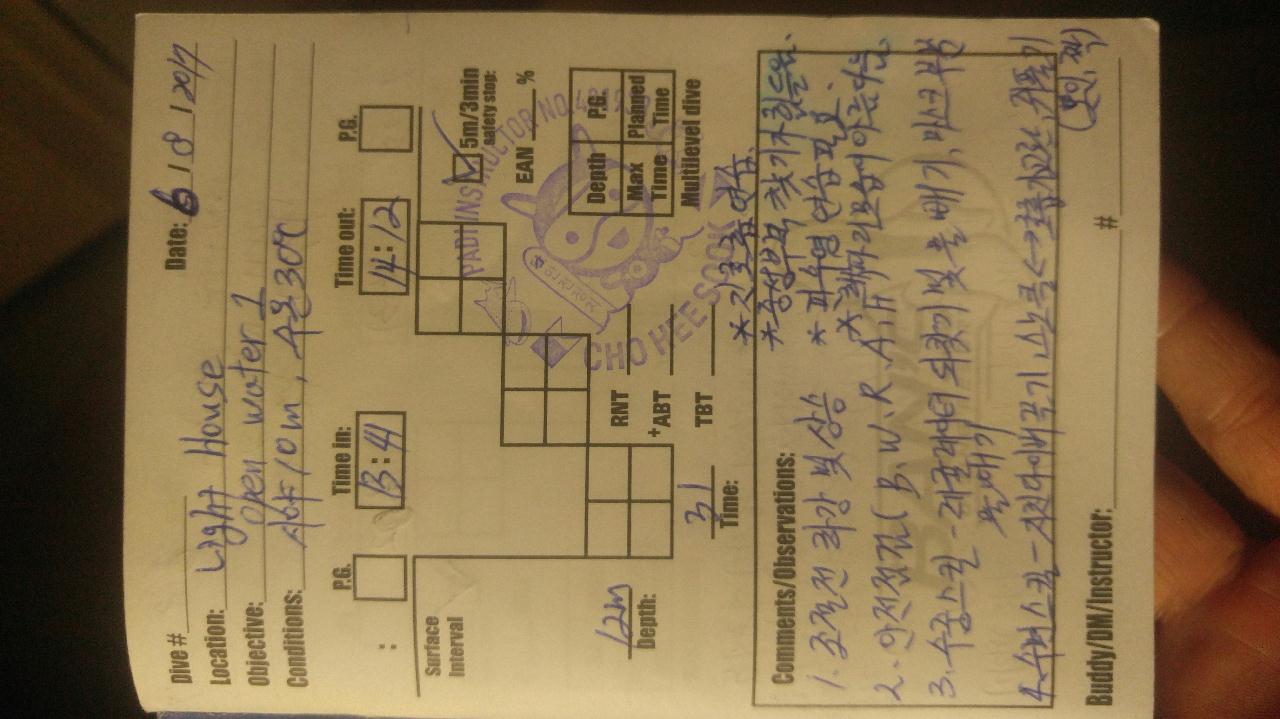 Dive #
Date: 6 / 8 / 2017
Location: Light House
Objective: Open water 1
Conditions: 시야 10m, 수온 30℃
P.G. Time in: Time out: P.G.
: 13:41 14:12
Surface Interval
5m/3min safety stop:
EAN %
Depth P.G.
Max Time Planned Time
Multilevel dive
PADI INSTRUCTOR NO.
CHO HEE SOOK
RNT
+ABT
TBT
12m
Depth:
31
Time:
Comments/Observations:
* 킥
연습.
* 중성부력 찾기가 힘듦.
* 피수영 연습 필요.
1. 조절전 하강 및 상승
2. 안전점검 (B. W. R. A. F)
3. 수중스킬 - 레귤레이터 되찾기 및 물빼기, 마스크 부분
물빼기
4. 수면스킬 -
스노클 <-> 호흡기교환,
Buddy/DM/Instructor:
#